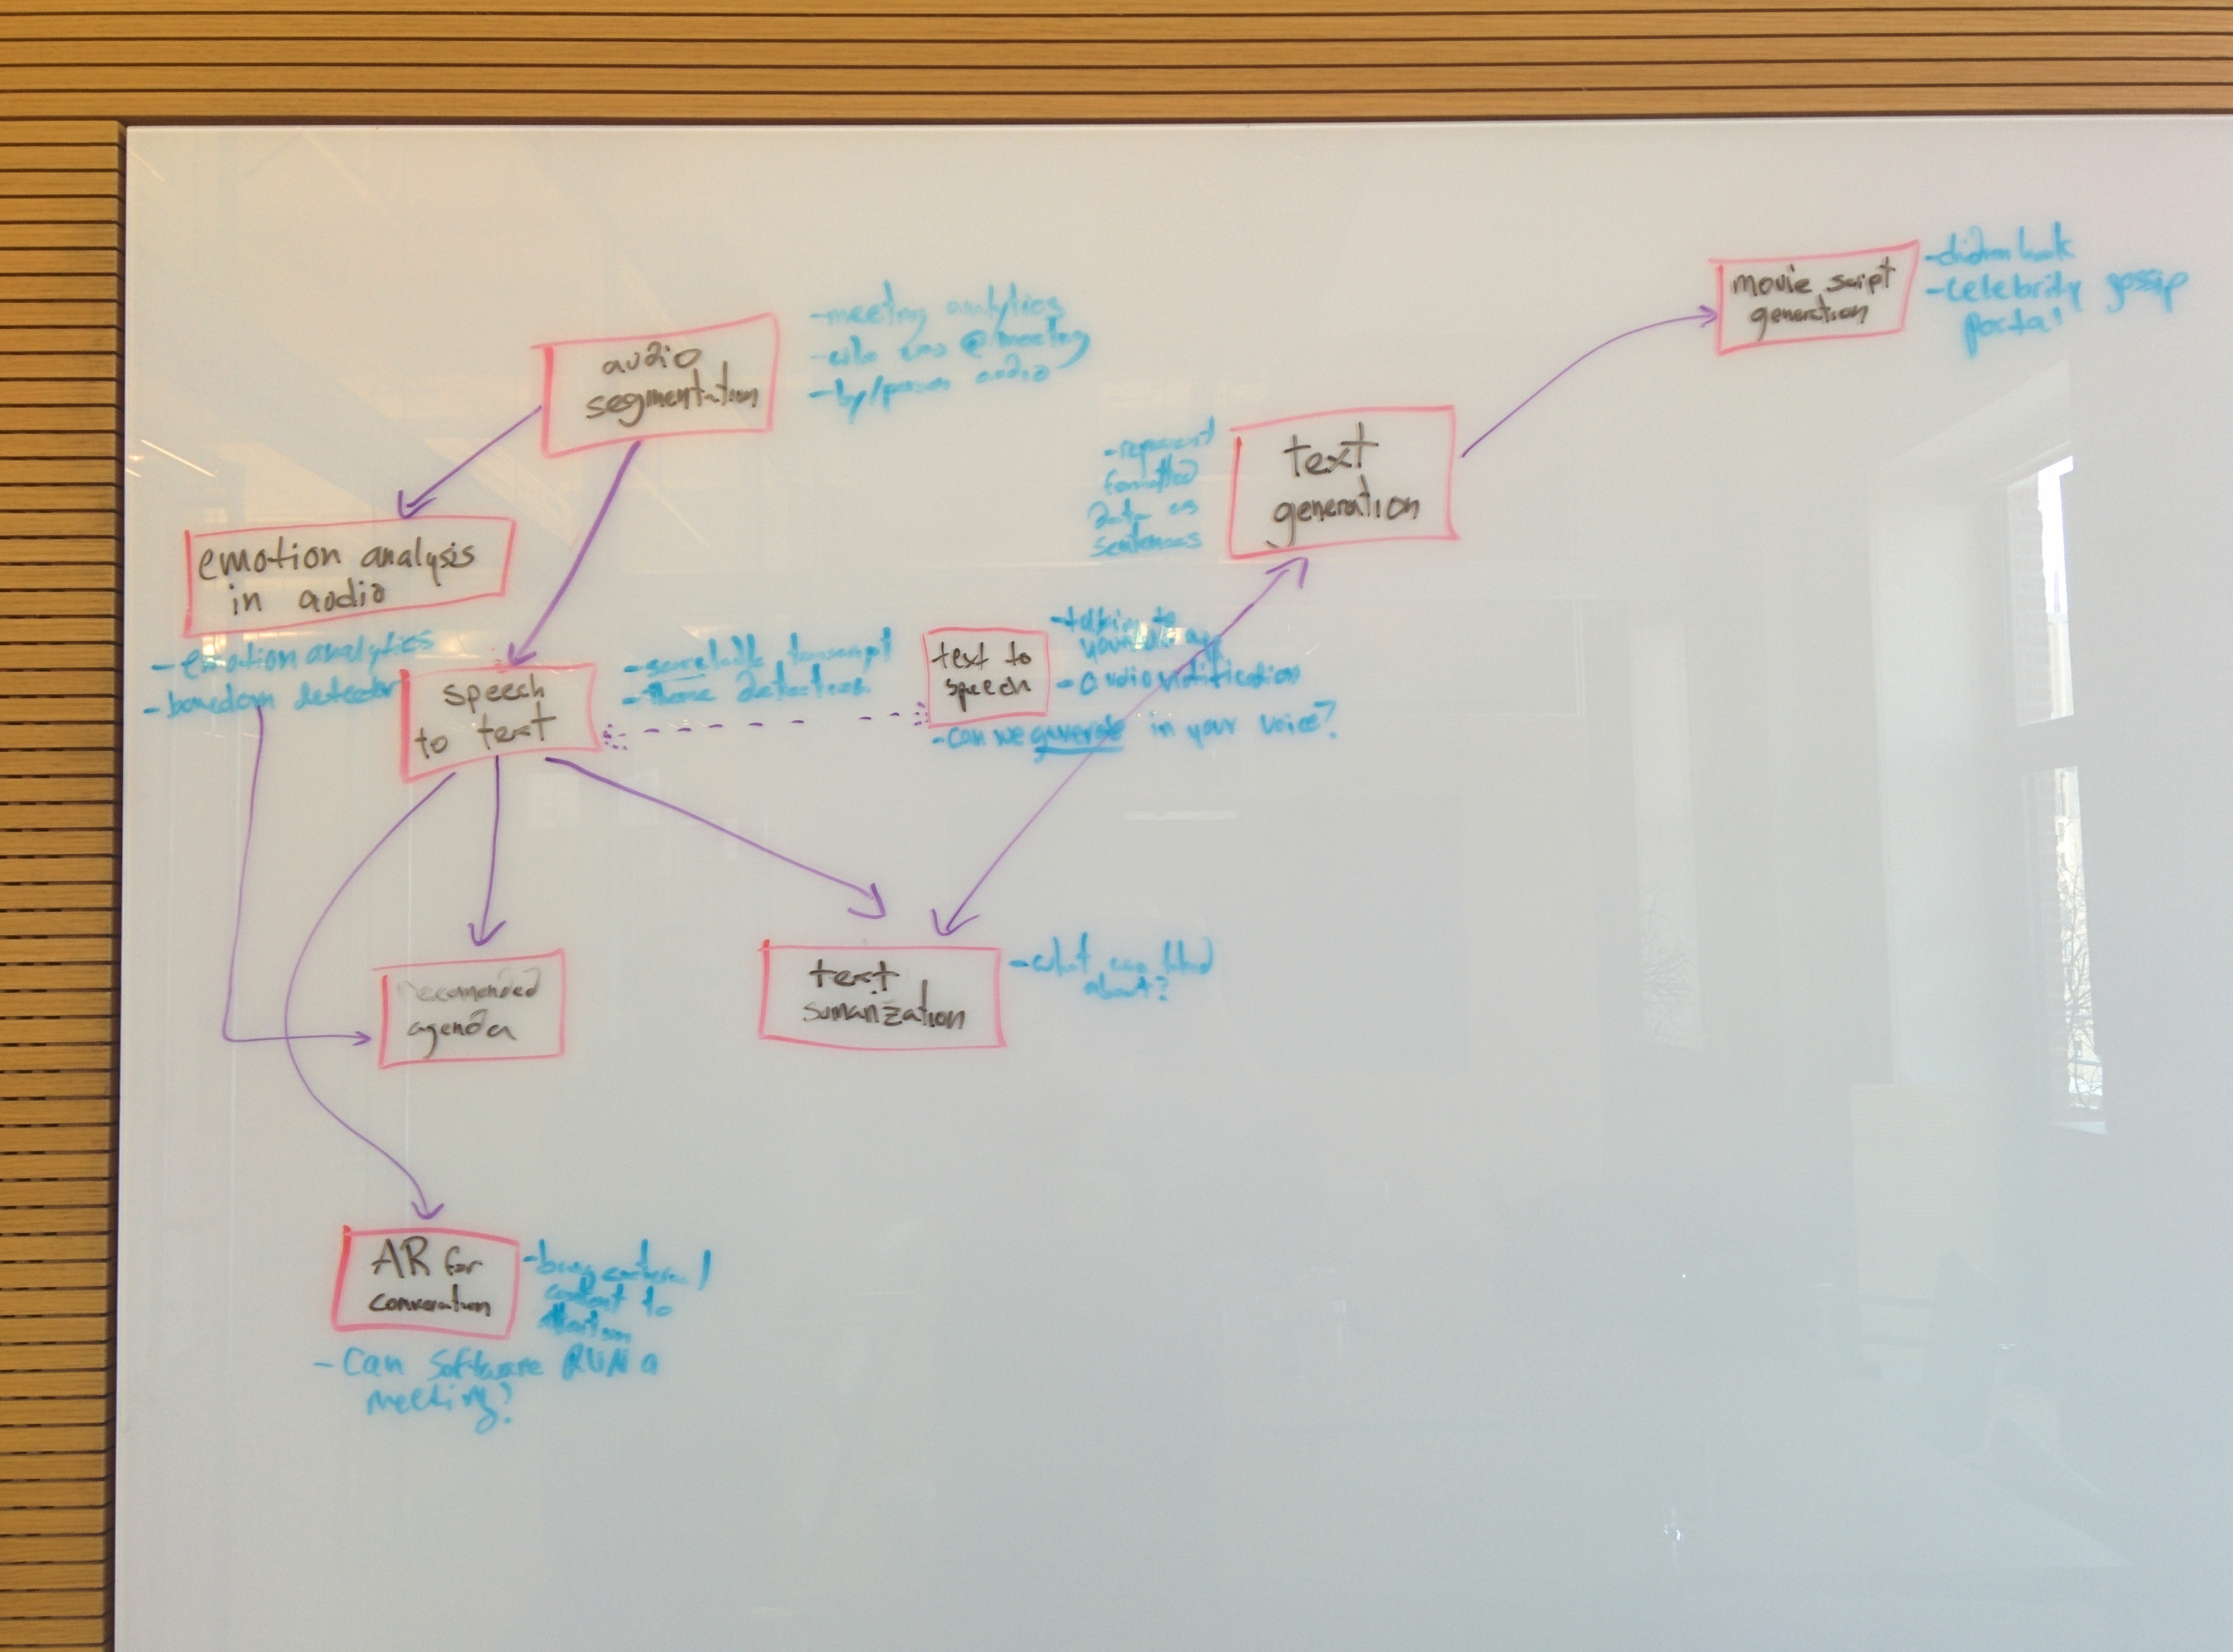 audio
segmentation
- meeting analytics
- who was @ meeting
- by/person audio
movie script
generation
- celebrity gossip
portal
text
generation
- represent
formatted
data as
sentences
emotion analysis
in audio
- emotion analytics
- boredom detector
speech
to text
- searchable transcript
- theme detection
text to
speech
- talking to
- audio notification
- Can we generate in your voice?
recomended
agenda
text
sumarization
- what
about?
AR for
conversation
- bring external
content to
- Can Software RUN a
meeting?